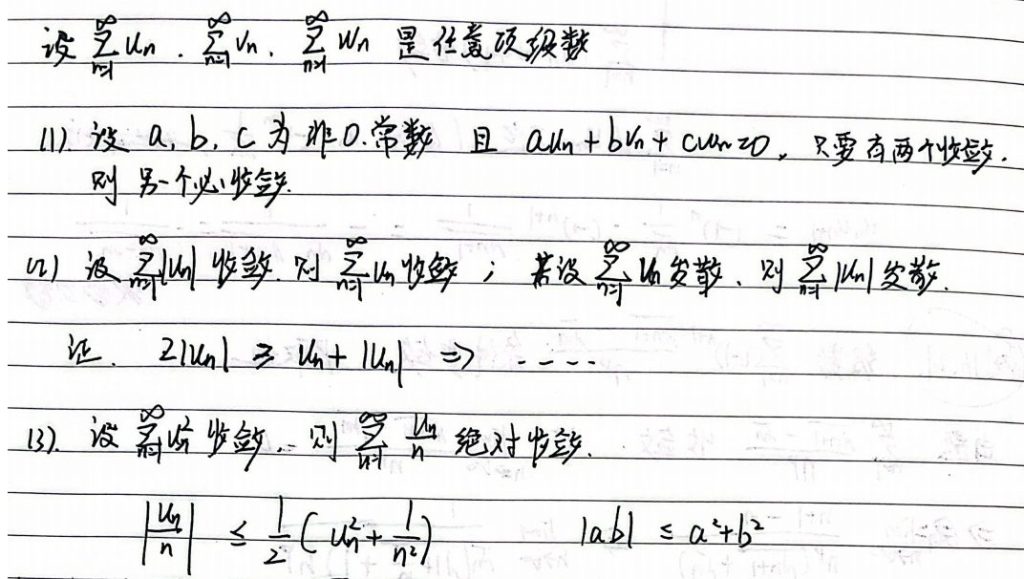 设 ∑_{n=1}^{∞} u_n . ∑_{n=1}^{∞} v_n . ∑_{n=1}^{∞} w_n 是任意项级数
(1) 设 a, b, c 为非0.常数 且 au_n + bv_n + cw_n = 0 . 只要有两个收敛.
则 另一个必收敛.
(2) 设 ∑_{n=1}^{∞} |u_n| 收敛. 则 ∑_{n=1}^{∞} u_n 收敛 ; 若设 ∑_{n=1}^{∞} u_n 发散 . 则 ∑_{n=1}^{∞} |u_n| 发散.
证. 2|u_n| ≥ u_n + |u_n| ⇒ - - - -
(3). 设 ∑_{n=1}^{∞} u_n^2 收敛. 则 ∑_{n=1}^{∞} u_n/n 绝对收敛.
|u_n/n| ≤ 1/2 ( u_n^2 + 1/n^2 ) |ab| ≤ a^2+b^2